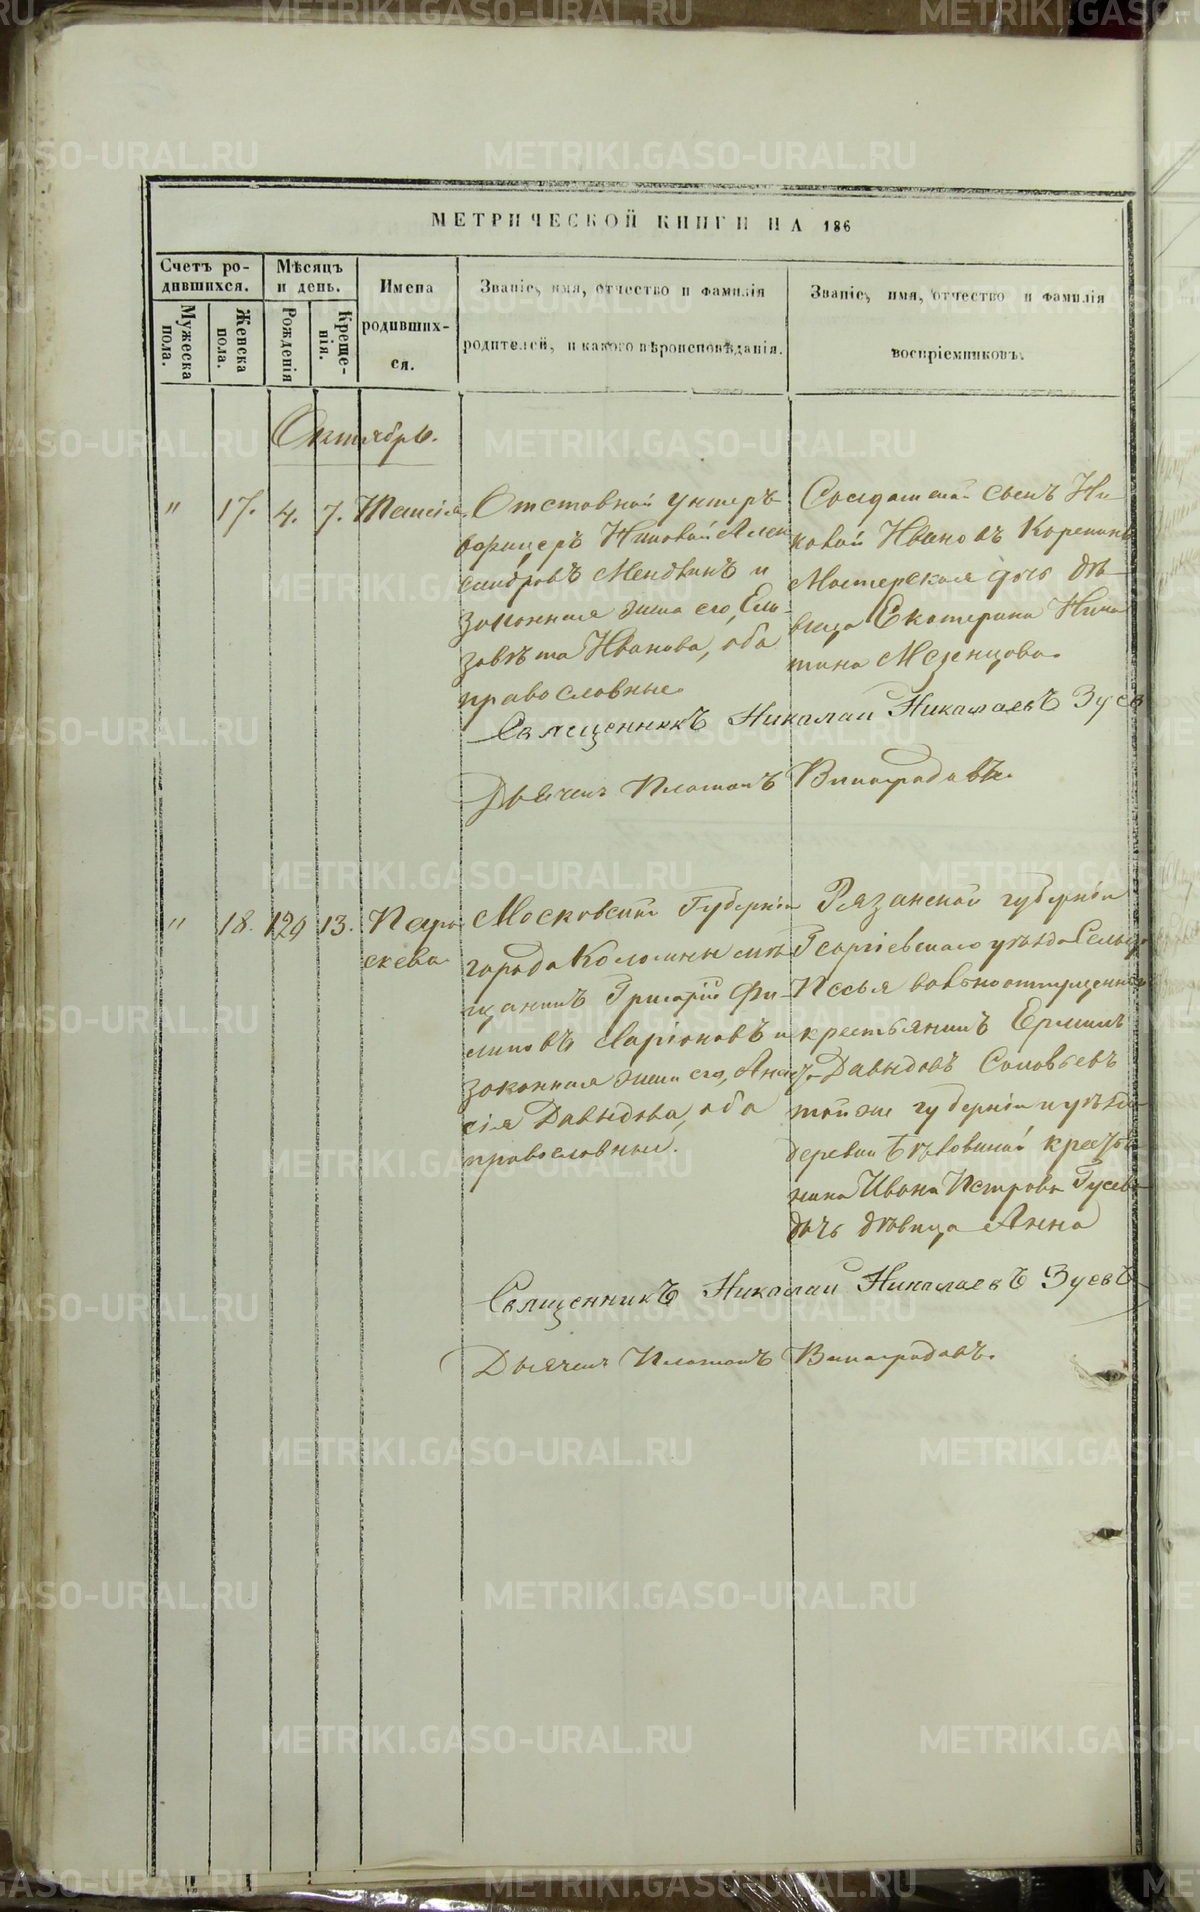 МЕТРИЧЕСКОЙ КНИГИ НА 186
Счетъ ро-
дившихся.
Мѣсяцъ
и день.
Имена
родивших-
ся.
Званіе, имя, отчество и фамилія
родителей, и какого вѣроисповѣданія.
Званіе, имя, отчество и фамилія
воспріемниковъ.
Мужеска
пола.
Женска
пола.
Рожденія
Креще-
нія.
Октябрь.
" 17. 4. 7. Таисія.
Отставной унтеръ
офицеръ Николай Алек
сандровъ и
законная жена его, Ели-
завѣта Иванова, оба
православные.
Солдатскій сынъ Ни
колай Ивановъ
Мастерская дочь дѣ-
вица Екатерина Ники
тина Мезенцова.
Священникъ Николаи Николаевъ Зуев
Дьячекъ Платонъ Виноградовъ.
" 18. 13. Пара
скева
Московской Губерніи
города Коломны мѣ
щанинъ Григорій Фи-
липовъ Ларіоновъ и
законная жена его, Анас
сія Давыдова, оба
православные.
Рязанской губерніи
Георгіевскаго уѣзда Сельца
вольноотпущенный
крестьянинъ Ермилъ
Давыдовъ Соловьевъ
той же губерніи и уѣзда
деревни крестья
нина Ивана Петрова Гусева
дочь дѣвица Анна
Священникъ Николаи Николаевъ Зуевъ
Дьячекъ Платонъ Виноградовъ.
METRIKI.GASO-URAL.RU